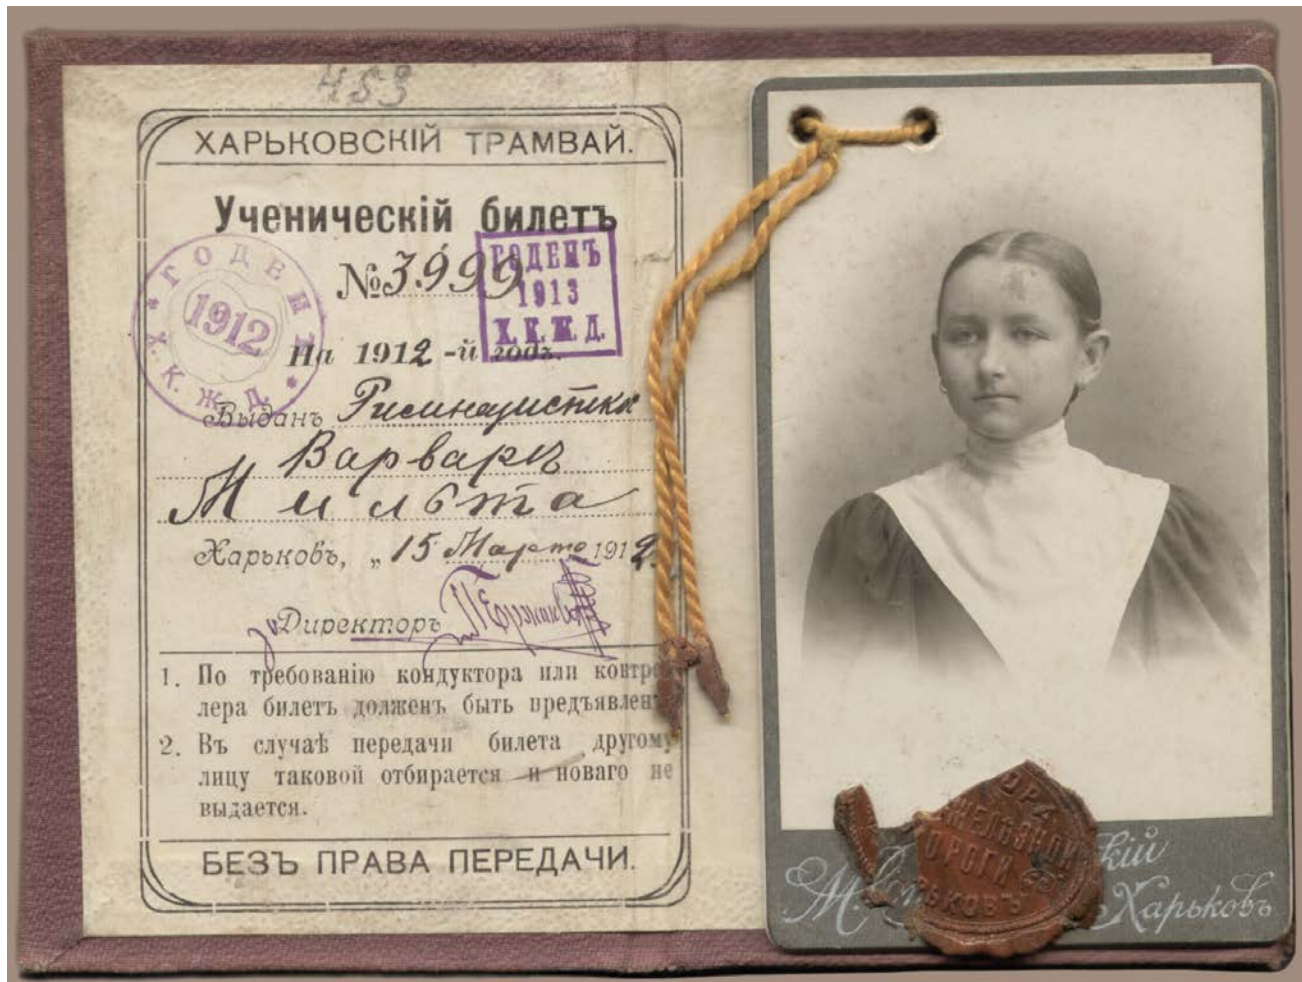 453
ХАРЬКОВСКІЙ ТРАМВАЙ.
Ученическій билетъ
№ 3999
ГОДЕНЪ
1912
Х. К. Ж. Д.
ГОДЕНЪ
1913
Х. К. Ж. Д.
На 1912-й годъ.
Выданъ Гимназистке
Варваре
Мильта
Харьковъ, „ 15 Марта 1912.
за Директоръ
1. По требованію кондуктора или контро
лера билетъ долженъ быть предъявленъ
2. Въ случаѣ передачи билета другому
лицу таковой отбирается и новаго не
выдается.
БЕЗЪ ПРАВА ПЕРЕДАЧИ.
ЖЕЛѢЗНОЙ
ДОРОГИ
М.
Харьковъ